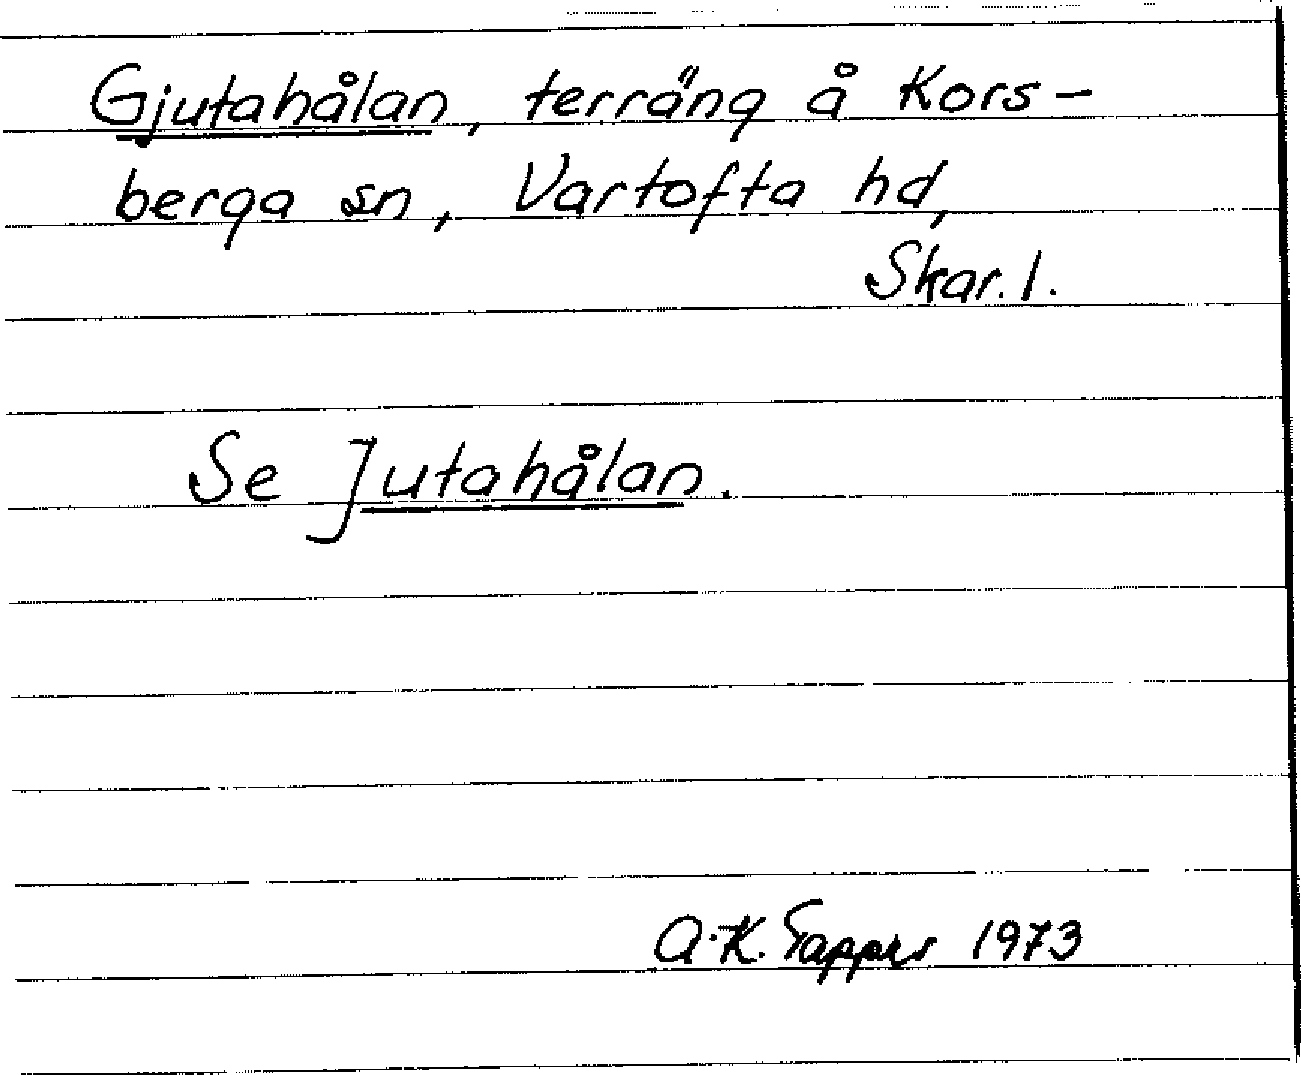 Gjutahålan, terräng å Kors-
berga sn, Vartofta hd,
Skar. l.
Se Jutahålan.
A-K. Tappers 1973